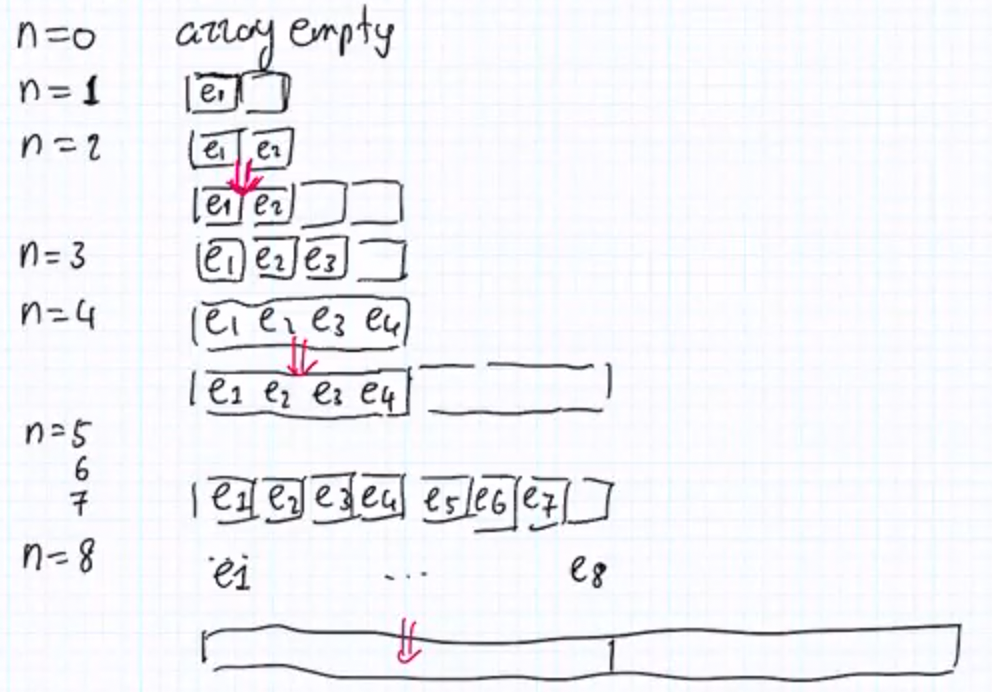 n=0 array empty
n=1 e1
n=2 e1 e2
e1 e2
n=3 e1 e2 e3
n=4 e1 e2 e3 e4
e1 e2 e3 e4
n=5
6
7 e1 e2 e3 e4 e5 e6 e7
n=8 e1 ... e8